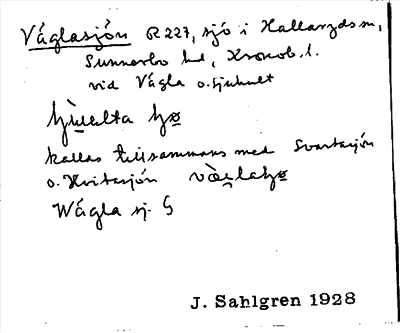 Våglasjön R 227, sjö i Hallaryds sn,
Sunnerbo hd, Kronob. l.
vid Vågla o. Sjuhult
kallas tillsammans med Svartasjön
o. Hvitasjön
Wågla sj. G
J. Sahlgren 1928